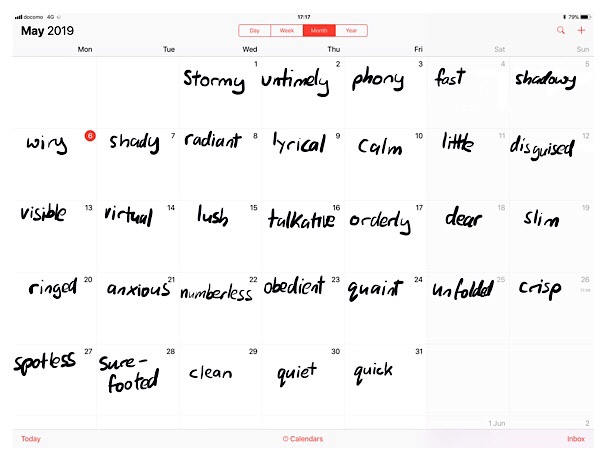 docomo 4G 17:17 79%
May 2019 Day Week Month Year
Mon Tue Wed Thu Fri Sat Sun
1 2 3 4 5
Stormy untimely phony fast shadowy
6 7 8 9 10 11 12
wiry shady radiant lyrical calm little disguised
13 14 15 16 17 18 19
visible virtual lush talkative orderly dear slim
20 21 22 23 24 25 26
ringed anxious numberless obedient quaint unfolded crisp
27 28 29 30 31
spotless sure-
footed clean quiet quick
1 Jun 2
Today Calendars Inbox